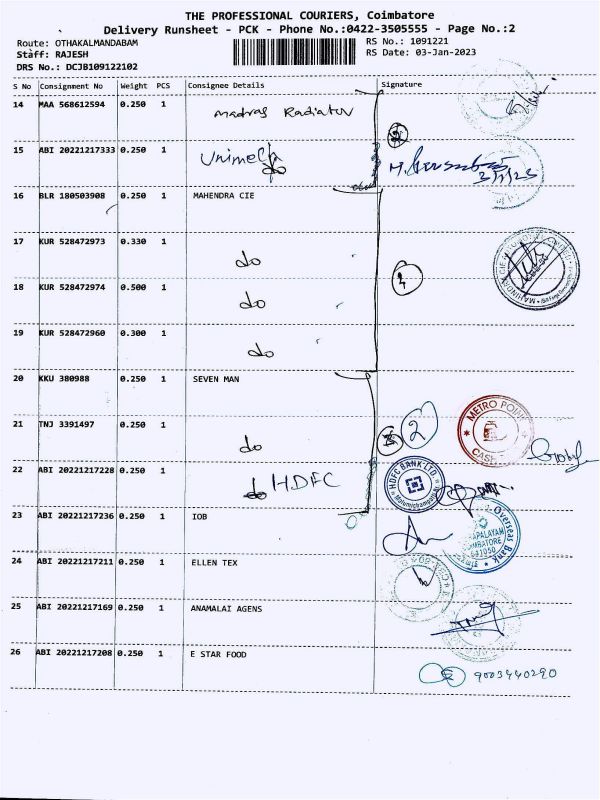 THE PROFESSIONAL COURIERS, Coimbatore
Delivery Runsheet - PCK - Phone No.:0422-3505555 - Page No.:2
Route: OTHAKALMANDABAM
RS No.: 1091221
Staff: RAJESH
RS Date: 03-Jan-2023
DRS No.: DCJB109122102
S No Consignment No Weight PCS Consignee Details Signature
14 MAA 568612594 0.250 1 madras Radiator
15 ABI 20221217333 0.250 1 Unimech do
3/1/23
16 BLR 180503908 0.250 1 MAHENDRA CIE
17 KUR 528472973 0.330 1 do
18 KUR 528472974 0.500 1 do
4
19 KUR 528472960 0.300 1 do
20 KKU 380988 0.250 1 SEVEN MAN
METRO POINT
21 TNJ 3391497 0.250 1 do 2
CASH
22 ABI 20221217228 0.250 1 do HDFC
HDFC BANK LTD.
23 ABI 20221217236 0.250 1 IOB
Overseas Bank
641050
24 ABI 20221217211 0.250 1 ELLEN TEX
25 ABI 20221217169 0.250 1 ANAMALAI AGENS
26 ABI 20221217208 0.250 1 E STAR FOOD
9003440290